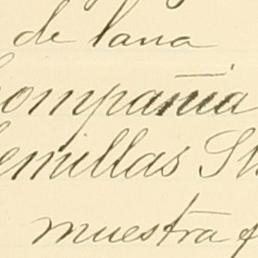 de lana
Compañia
Semillas St
muestra